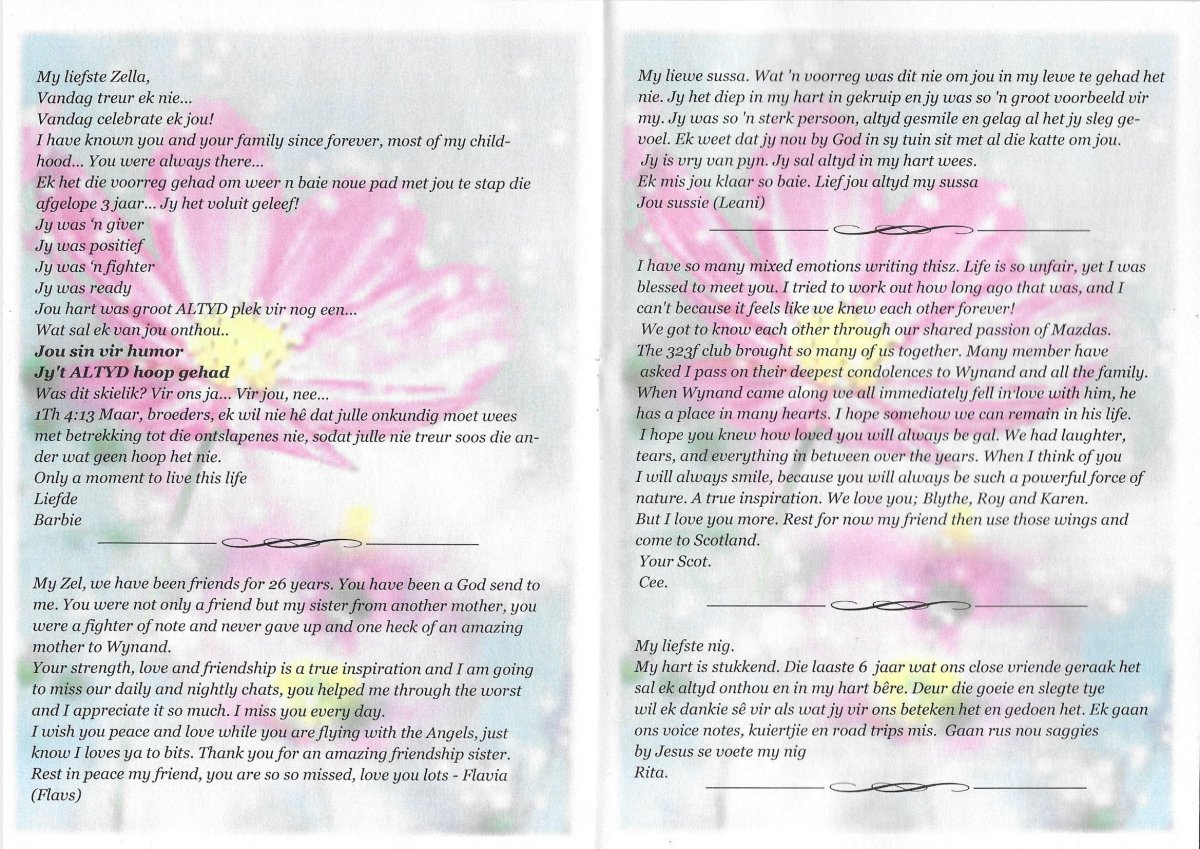 My liefste Zella,
Vandag treur ek nie...
Vandag celebrate ek jou!
I have known you and your family since forever, most of my child-
hood... You were always there...
Ek het die voorreg gehad om weer n baie noue pad met jou te stap die
afgelope 3 jaar... Jy het voluit geleef!
Jy was ‘n giver
Jy was positief
Jy was ‘n fighter
Jy was ready
Jou hart was groot ALTYD plek vir nog een...
Wat sal ek van jou onthou..
Jou sin vir humor
Jy't ALTYD hoop gehad
Was dit skielik? Vir ons ja... Vir jou, nee...
1Th 4:13 Maar, broeders, ek wil nie hê dat julle onkundig moet wees
met betrekking tot die ontslapenes nie, sodat julle nie treur soos die an-
der wat geen hoop het nie.
Only a moment to live this life
Liefde
Barbie
My Zel, we have been friends for 26 years. You have been a God send to
me. You were not only a friend but my sister from another mother, you
were a fighter of note and never gave up and one heck of an amazing
mother to Wynand.
Your strength, love and friendship is a true inspiration and I am going
to miss our daily and nightly chats, you helped me through the worst
and I appreciate it so much. I miss you every day.
I wish you peace and love while you are flying with the Angels, just
know I loves ya to bits. Thank you for an amazing friendship sister.
Rest in peace my friend, you are so so missed, love you lots - Flavia
(Flavs)
My liewe sussa. Wat 'n voorreg was dit nie om jou in my lewe te gehad het
nie. Jy het diep in my hart in gekruip en jy was so 'n groot voorbeeld vir
my. Jy was so 'n sterk persoon, altyd gesmile en gelag al het jy sleg ge-
voel. Ek weet dat jy nou by God in sy tuin sit met al die katte om jou.
Jy is vry van pyn. Jy sal altyd in my hart wees.
Ek mis jou klaar so baie. Lief jou altyd my sussa
Jou sussie (Leani)
I have so many mixed emotions writing thisz. Life is so unfair, yet I was
blessed to meet you. I tried to work out how long ago that was, and I
can't because it feels like we knew each other forever!
We got to know each other through our shared passion of Mazdas.
The 323f club brought so many of us together. Many member have
asked I pass on their deepest condolences to Wynand and all the family.
When Wynand came along we all immediately fell in love with him, he
has a place in many hearts. I hope somehow we can remain in his life.
I hope you knew how loved you will always be gal. We had laughter,
tears, and everything in between over the years. When I think of you
I will always smile, because you will always be such a powerful force of
nature. A true inspiration. We love you; Blythe, Roy and Karen.
But I love you more. Rest for now my friend then use those wings and
come to Scotland.
Your Scot.
Cee.
My liefste nig.
My hart is stukkend. Die laaste 6 jaar wat ons close vriende geraak het
sal ek altyd onthou en in my hart bêre. Deur die goeie en slegte tye
wil ek dankie sê vir als wat jy vir ons beteken het en gedoen het. Ek gaan
ons voice notes, kuiertjie en road trips mis. Gaan rus nou saggies
by Jesus se voete my nig
Rita.